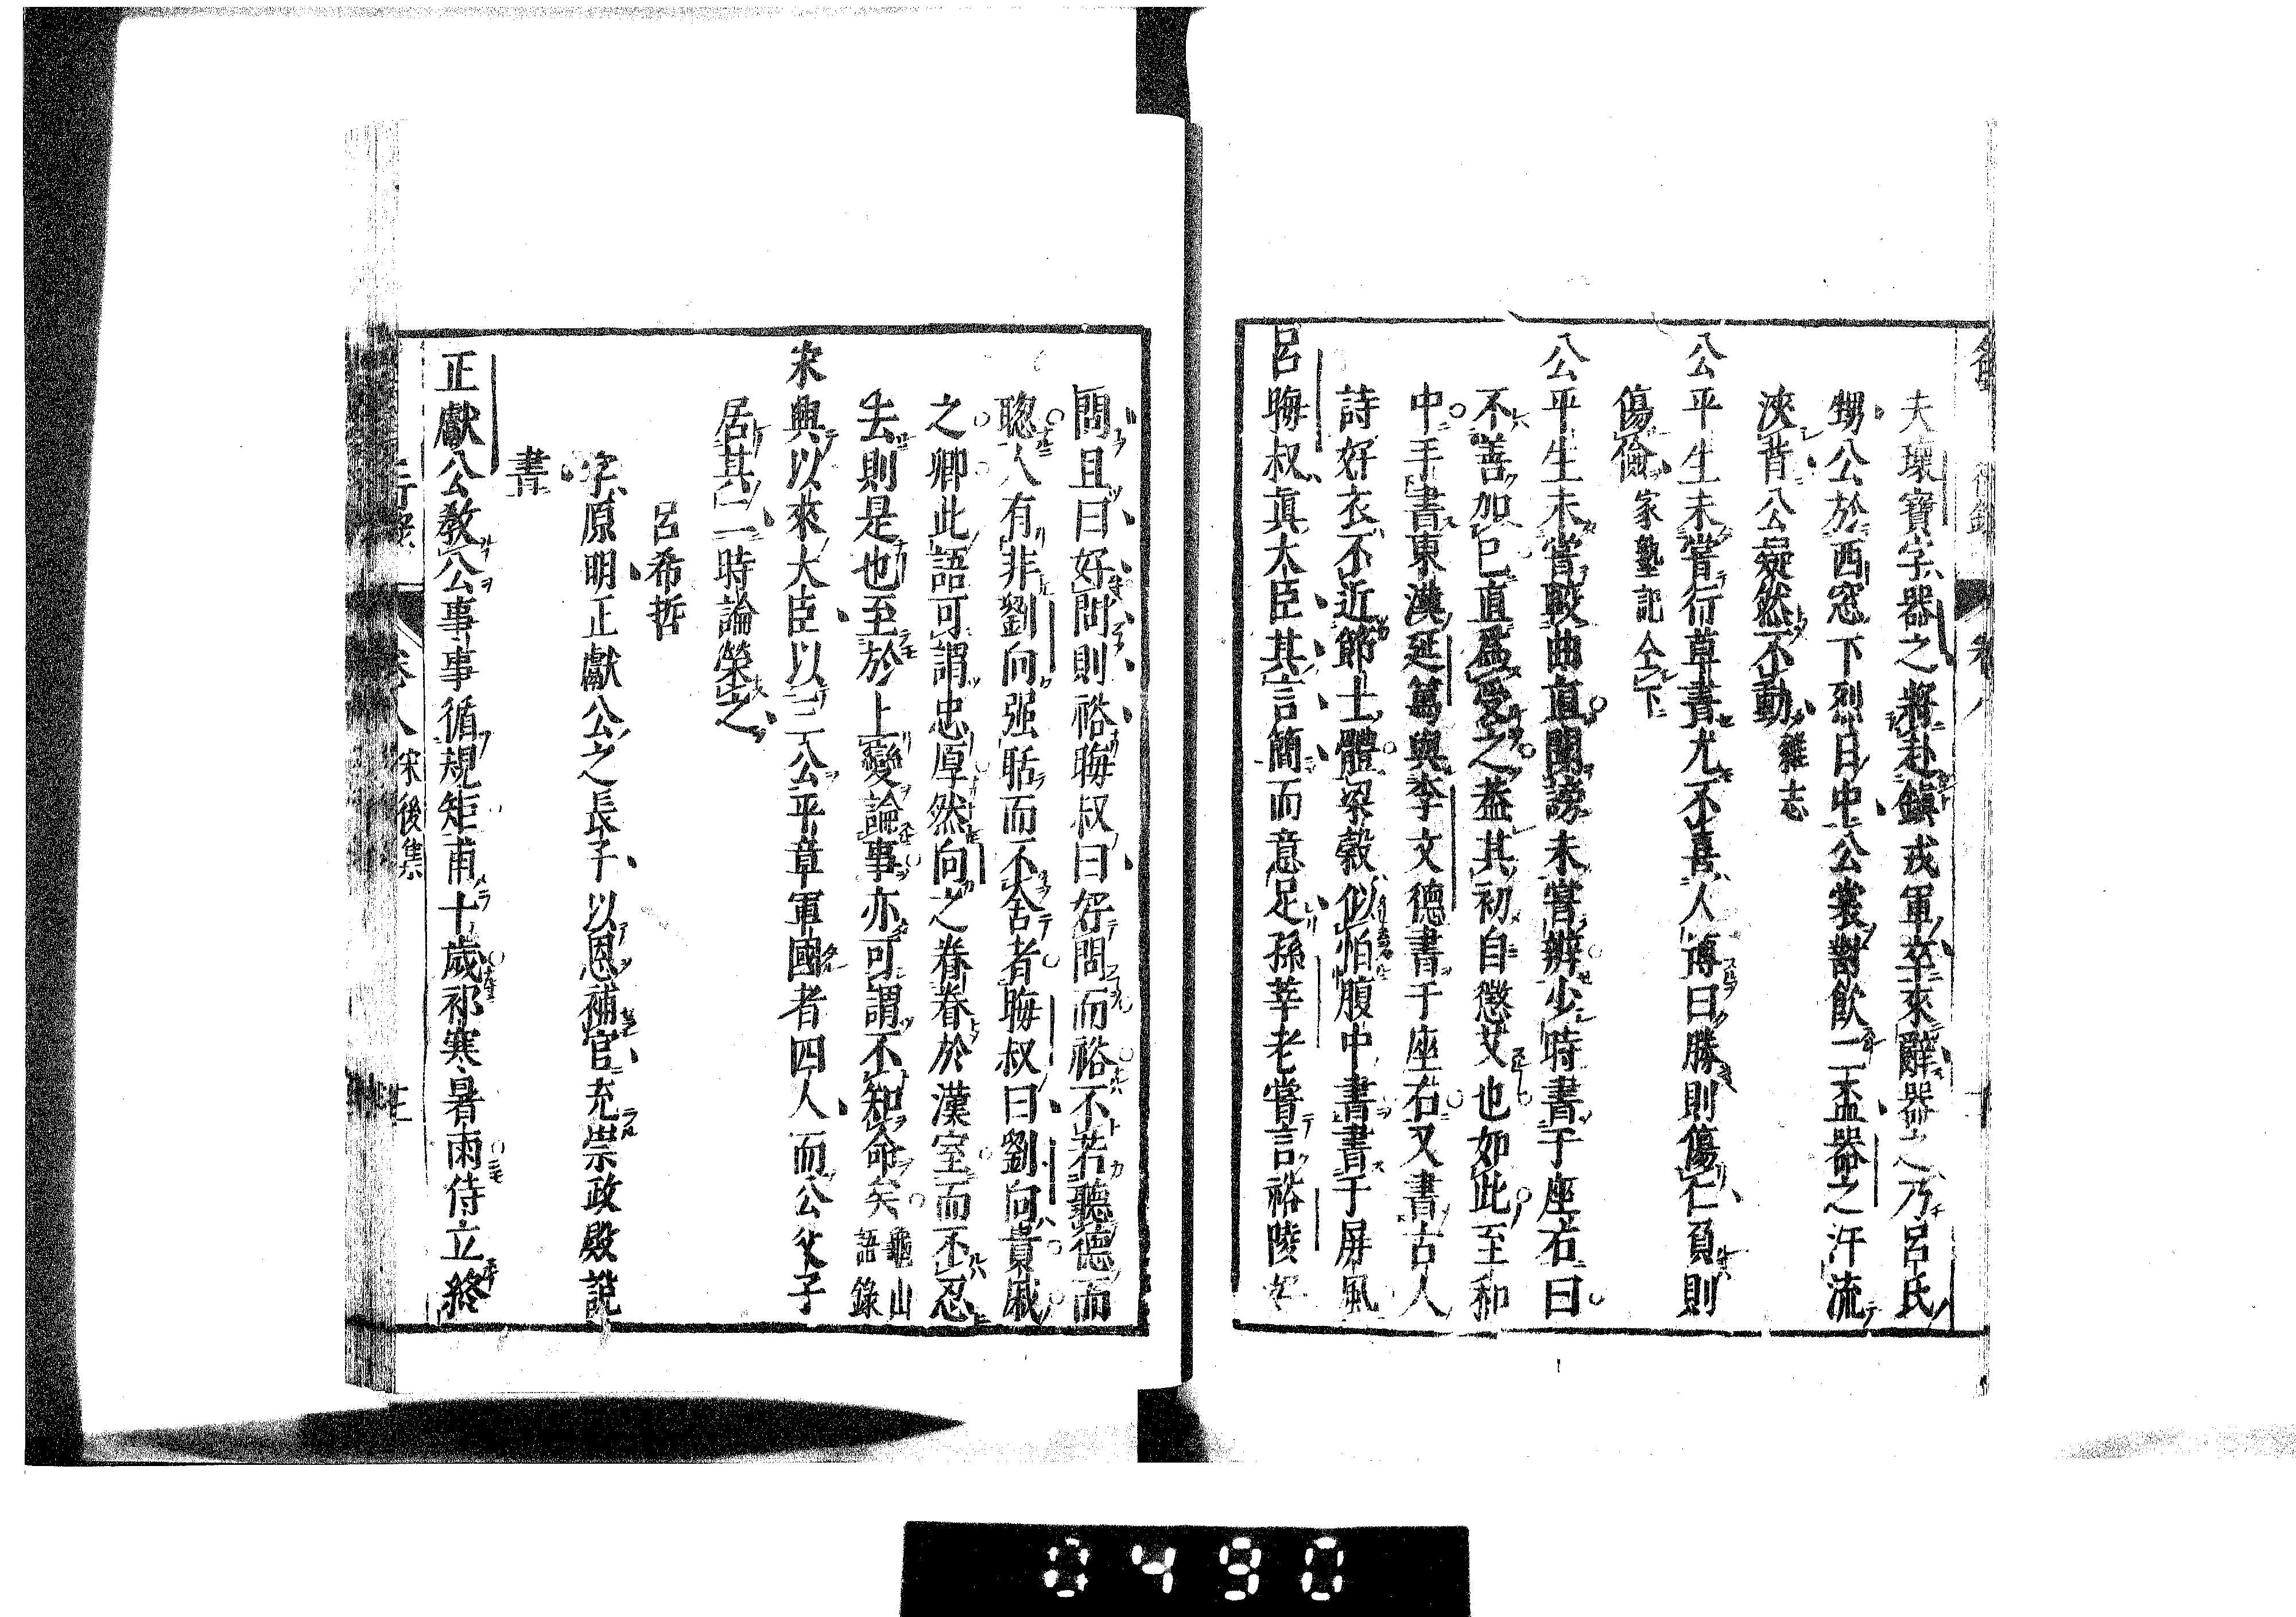 夫瓌寶字器之將赴鎮戎軍卒來辭器之乃呂氏
甥公於西窓下烈日中公裳對飲二盃器之汗流
浹背公凝然不動雜志
公平生未嘗行草書尤不喜人博曰勝則傷仁負則
傷儉家塾記仝下
公平生未嘗較曲直聞謗未嘗辨少時書于座右曰
不善加己直爲受之葢其初自懲艾也如此至和
中手書東漢延篤與李文德書于座右又書古人
詩好衣不近節士體梁穀似怕腹中書書于屏風
呂晦叔眞大臣其言簡而意足孫莘老嘗言裕陵
問且曰好問則裕晦叔曰好問而裕不若聽德而
聰人有非劉向强聒而不舍者晦叔曰劉向貴戚
之卿此語可謂忠厚然向之眷眷於漢室而不忍
去則是也至於上變論事亦可謂不知命矣龜山語錄
宋興以來大臣以三公平章軍國者四人而公父子
居其二時論榮之
呂希哲
字原明正獻公之長子以恩補官充崇政殿說
書
正獻公教公事事循規矩甫十歲祁寒暑雨侍立終
宋後集
0490